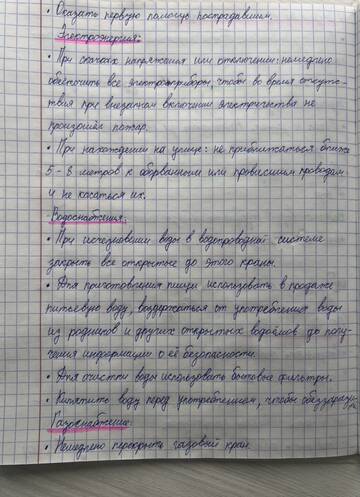 • Оказать первую помощь пострадавшим.
Электроэнергия:
• При скачках напряжения или отключении: немедленно
обесточить все электроприборы, чтобы во время отсутс-
твия при внезапном включении электричества не
произошёл пожар.
• При нахождении на улице: не приближаться ближе
5-8 метров к оборванным или провисшим проводам
и не касаться их.
Водоснабжения:
• При исчезновении воды в водопроводной системе
закрыть все открытые до этого краны.
• Для приготовления пищи использовать в продаже
питьевую воду, воздержаться от употребления воды
из родников и других открытых водоёмов до полу-
чения информации о её безопасности.
• Для очистки воды использовать бытовые фильтры.
• Кипятить воду перед употреблением, чтобы
Газоснабжение:
• Немедленно перекрыть газовый кран.